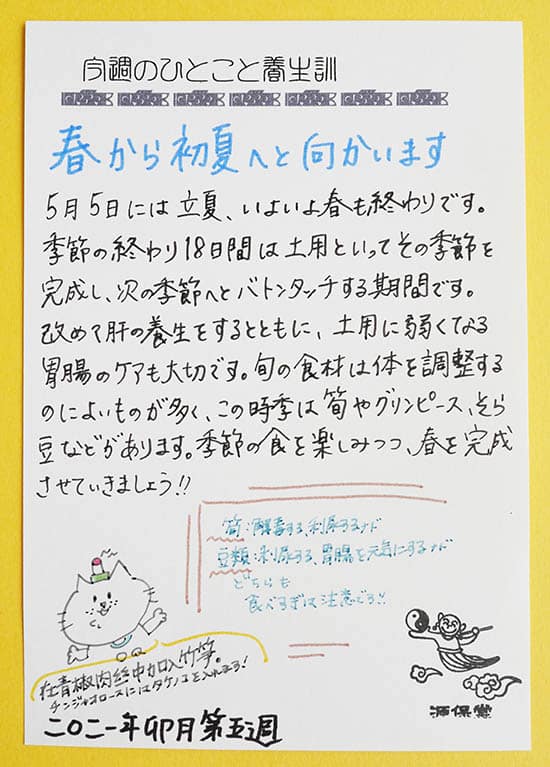 今週のひとこと養生訓
春から初夏へと向かいます
5月5日には立夏、いよいよ春も終わりです。
季節の終わり18日間は土用といってその季節を
完成し、次の季節へとバトンタッチする期間です。
改めて肝の養生をするとともに、土用に弱くなる
胃腸のケアも大切です。旬の食材は体を調整する
のによいものが多く、この時季は筍やグリンピース、そら
豆などがあります。季節の食を楽しみつつ、春を完成
させていきましょう!!
筍:解毒する、利尿するナド
豆類:利尿する、胃腸を元気にするナド
どちらも
食べすぎは注意でう!!
在青椒肉絲中加入竹笋。
チンジャオロースにはタケノコを入れよう!
二〇二一年卯月第五週
源保堂